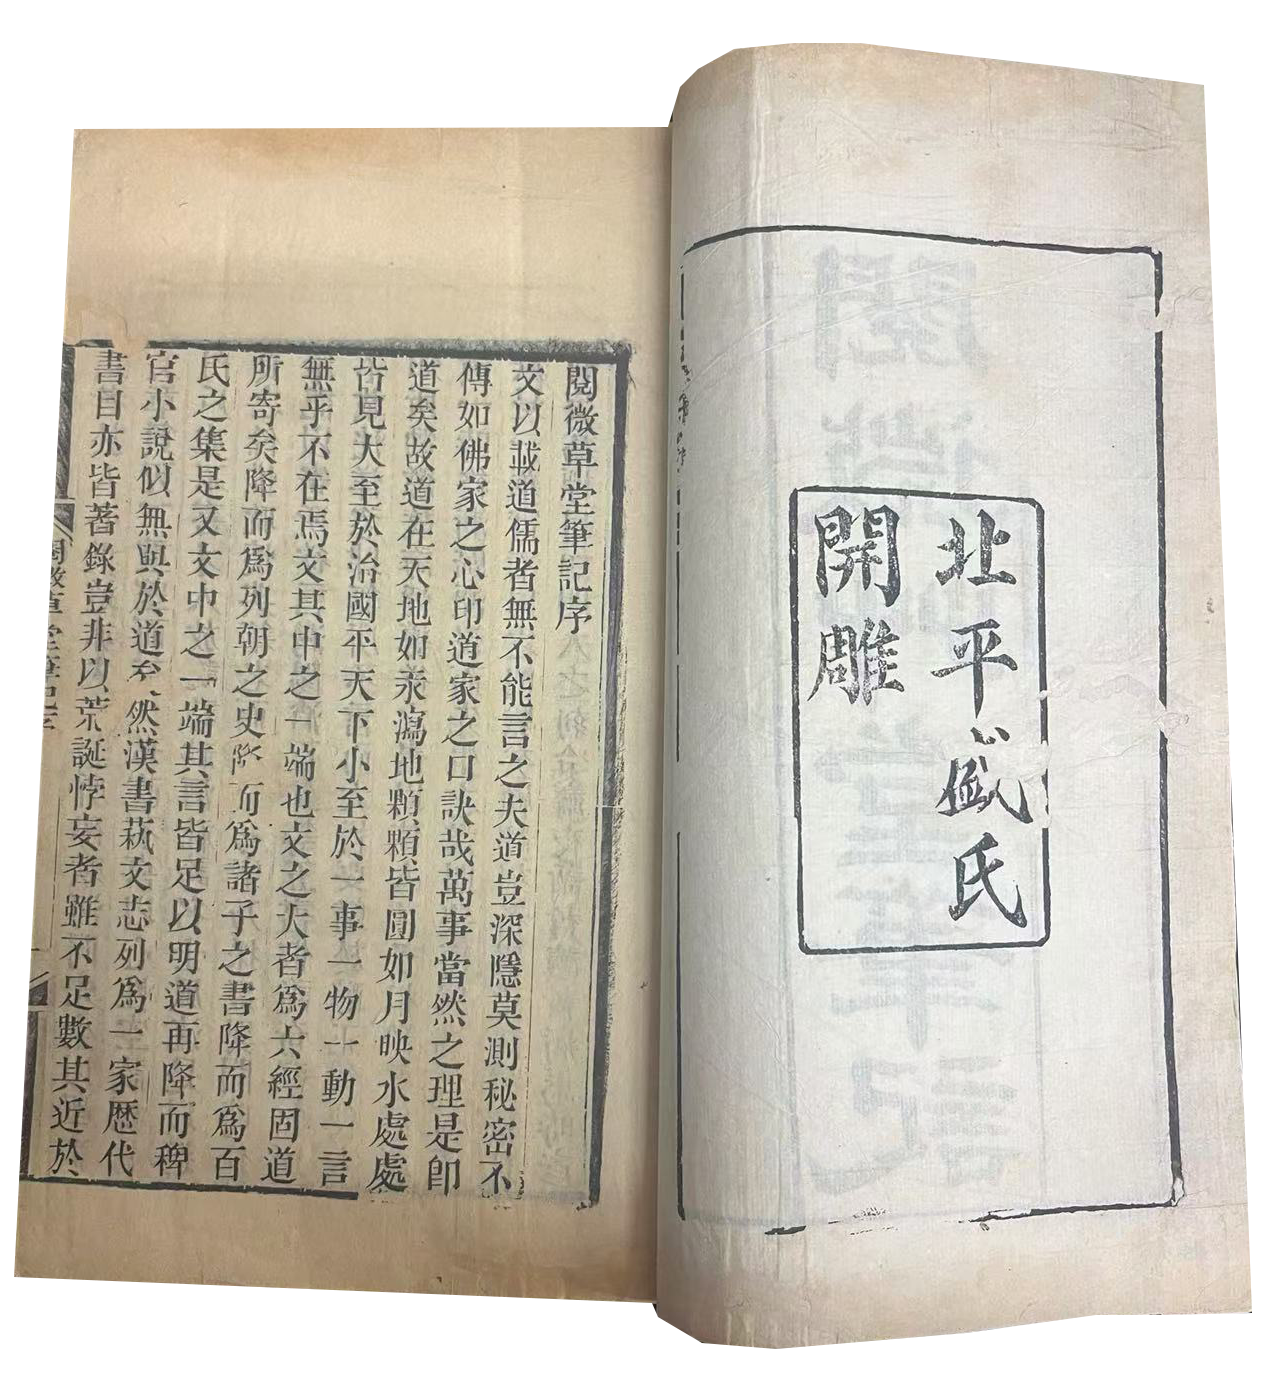 北平盛氏
開雕
閱微草堂筆記序
文以載道儒者無不能言之夫道豈深隱莫測秘密不
傳如佛家之心印道家之口訣哉萬事當然之理是卽
道矣故道在天地如汞瀉地顆顆皆圓如月映水處處
皆見大至於治國平天下小至於一事一物一動一言
無乎不在焉文其中之一端也文之大者爲六經固道
所寄矣降而爲列朝之史降而爲諸子之書降而爲百
氏之集是又文中之一端其言皆足以明道再降而稗
官小說似無與於道矣然漢書蓺文志列爲一家歷代
書目亦皆著錄豈非以荒誕悖妄者雖不足數其近於
閱微草堂筆記序